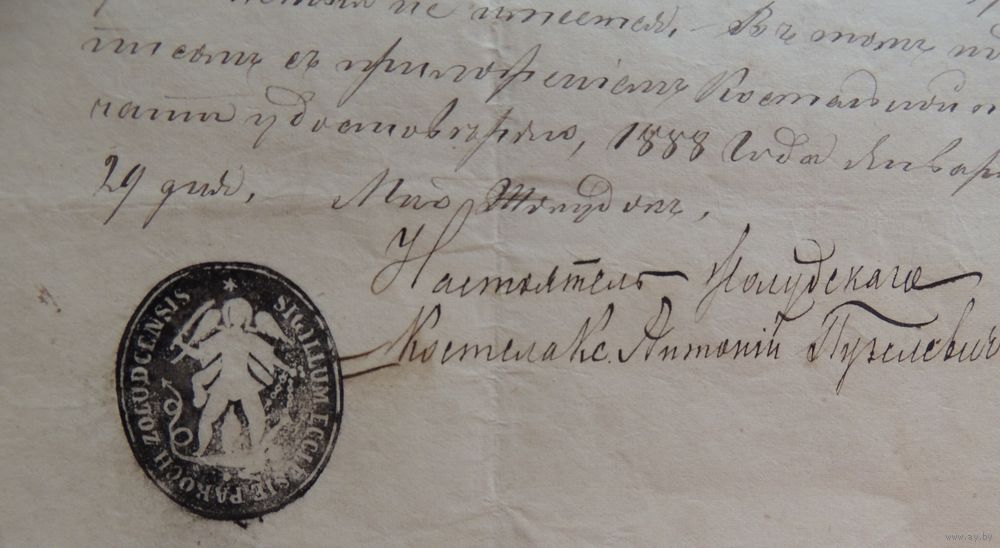 не имеется. Въ томъ
письомъ съ приложеніемъ Костельной
чати удостовѣряю, 1888 Года Январ
29 дня. Мяс Жолудокъ.
Настоятель Жолудскаго
Костела Кс. Антоній
SIGILLUM ECCLESIÆ PAROCH ZOŁUDCENSIS
www.ay.by